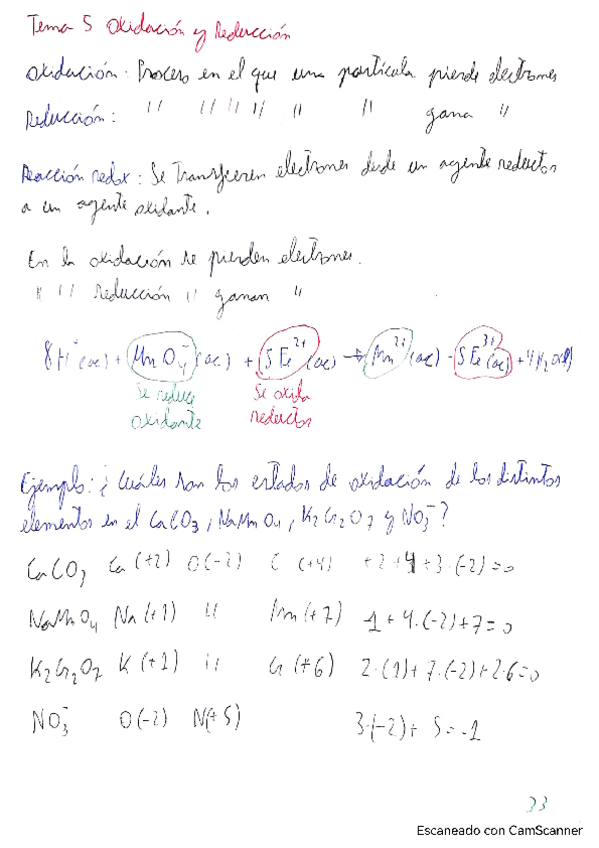 Tema 5 Oxidación y Reducción
Oxidación: Proceso en el que una partícula pierde electrones
Reducción: " " " " " " gana "
Reacción redox: Se transfieren electrones desde un agente reductor
a un agente oxidante.
En la oxidación se pierden electrones.
" " reducción " ganan "
8H⁺(ac) + MnO₄⁻(ac) + 5Fe²⁺(ac) → Mn²⁺(ac) - 5Fe³⁺(ac) + 4H₂O(l)
Se reduce Se oxida
oxidante reductor
Ejemplo: ¿Cuáles son los estados de oxidación de los distintos
elementos en el CaCO₃, NaMnO₄, K₂Cr₂O₇ y NO₃⁻?
CaCO₃ Ca (+2) O(-2) C (+4) +2+4+3·(-2)=0
NaMnO₄ Na (+1) " Mn (+7) 1+4·(-2)+7=0
K₂Cr₂O₇ K (+1) " Cr (+6) 2·(1)+7·(-2)+2·6=0
NO₃⁻ O(-2) N(+5) 3·(-2)+5=-1
33
Escaneado con CamScanner